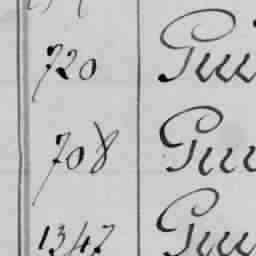 720 Gui
708 Gui
1347 Gui